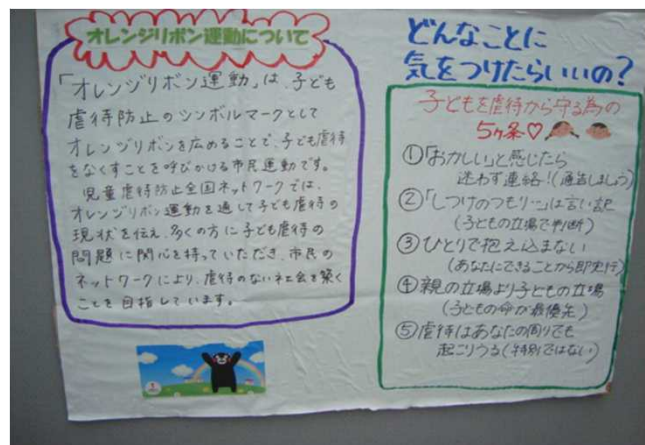 オレンジリボン運動について
「オレンジリボン運動」は、子ども
虐待防止のシンボルマークとして
オレンジリボンを広めることで、子ども虐待
をなくすことを呼びかける市民運動です。
児童虐待防止全国ネットワークでは、
オレンジリボン運動を通して子ども虐待の
現状を伝え、多くの方に子ども虐待の
問題に関心を持っていただき、市民の
ネットワークにより、虐待のない社会を築く
ことを目指しています。
どんなことに
気をつけたらいいの?
子どもを虐待から守る為の
5ヶ条♡
①「おかしい」と感じたら
迷わず連絡!(通告しましょう)
②「しつけのつもり…」は言い訳
(子どもの立場で判断)
③ひとりで抱え込まない
(あなたにできることから即実行)
④親の立場より子どもの立場
(子どもの命が最優先)
⑤虐待はあなたの周りでも
起こりうる(特別ではない)